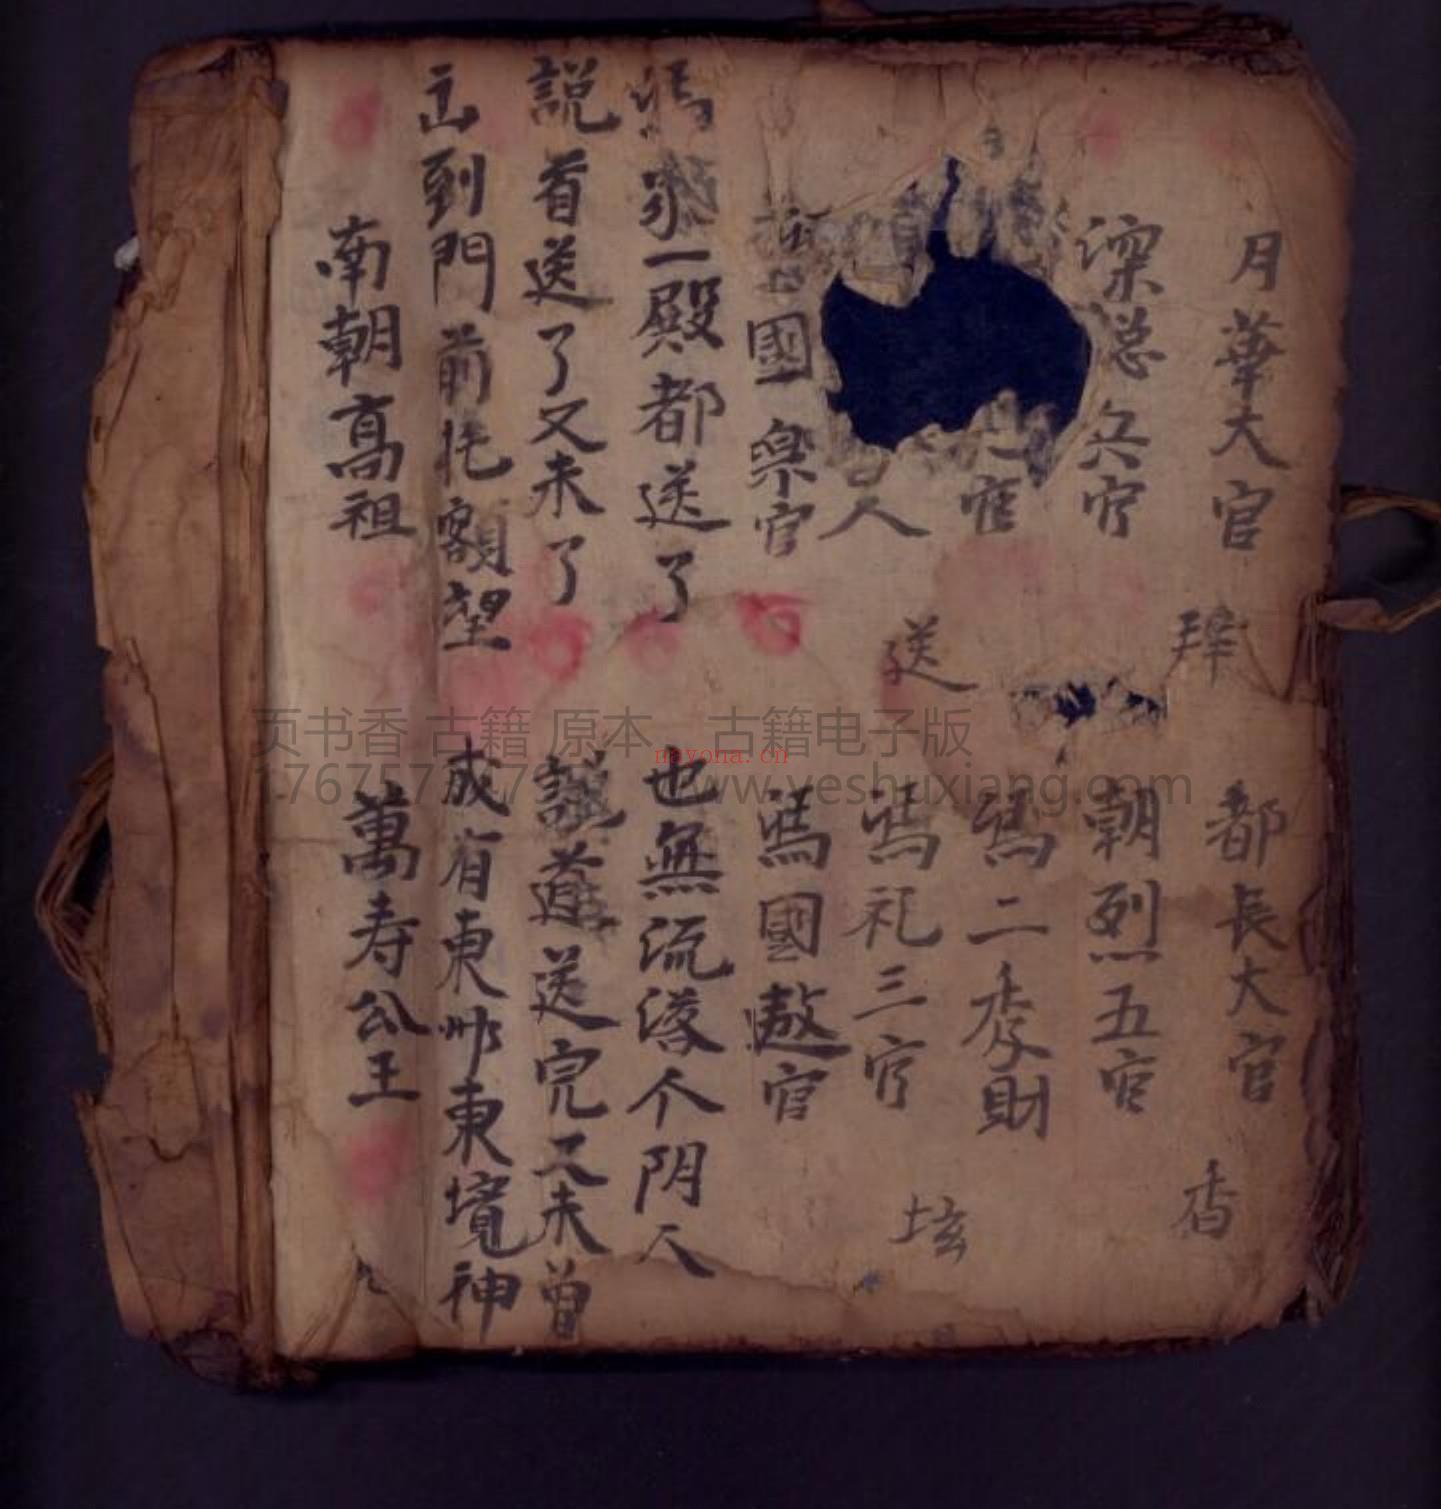 月華大官 都長大官
拜 香
深总兵官 朝烈五官
官 馮二李財
人 馮礼三官
送 坛
國梁官 馮國敖官
馮家一殿都送了 也無流落个阴人
説首送了又未了 説道送完又未曾
立到門前托額望 成有東作東境神
南朝高祖 萬寿公王
页书香 古籍 原本 古籍电子版
nayona.cn
www.yeshuxiang.com